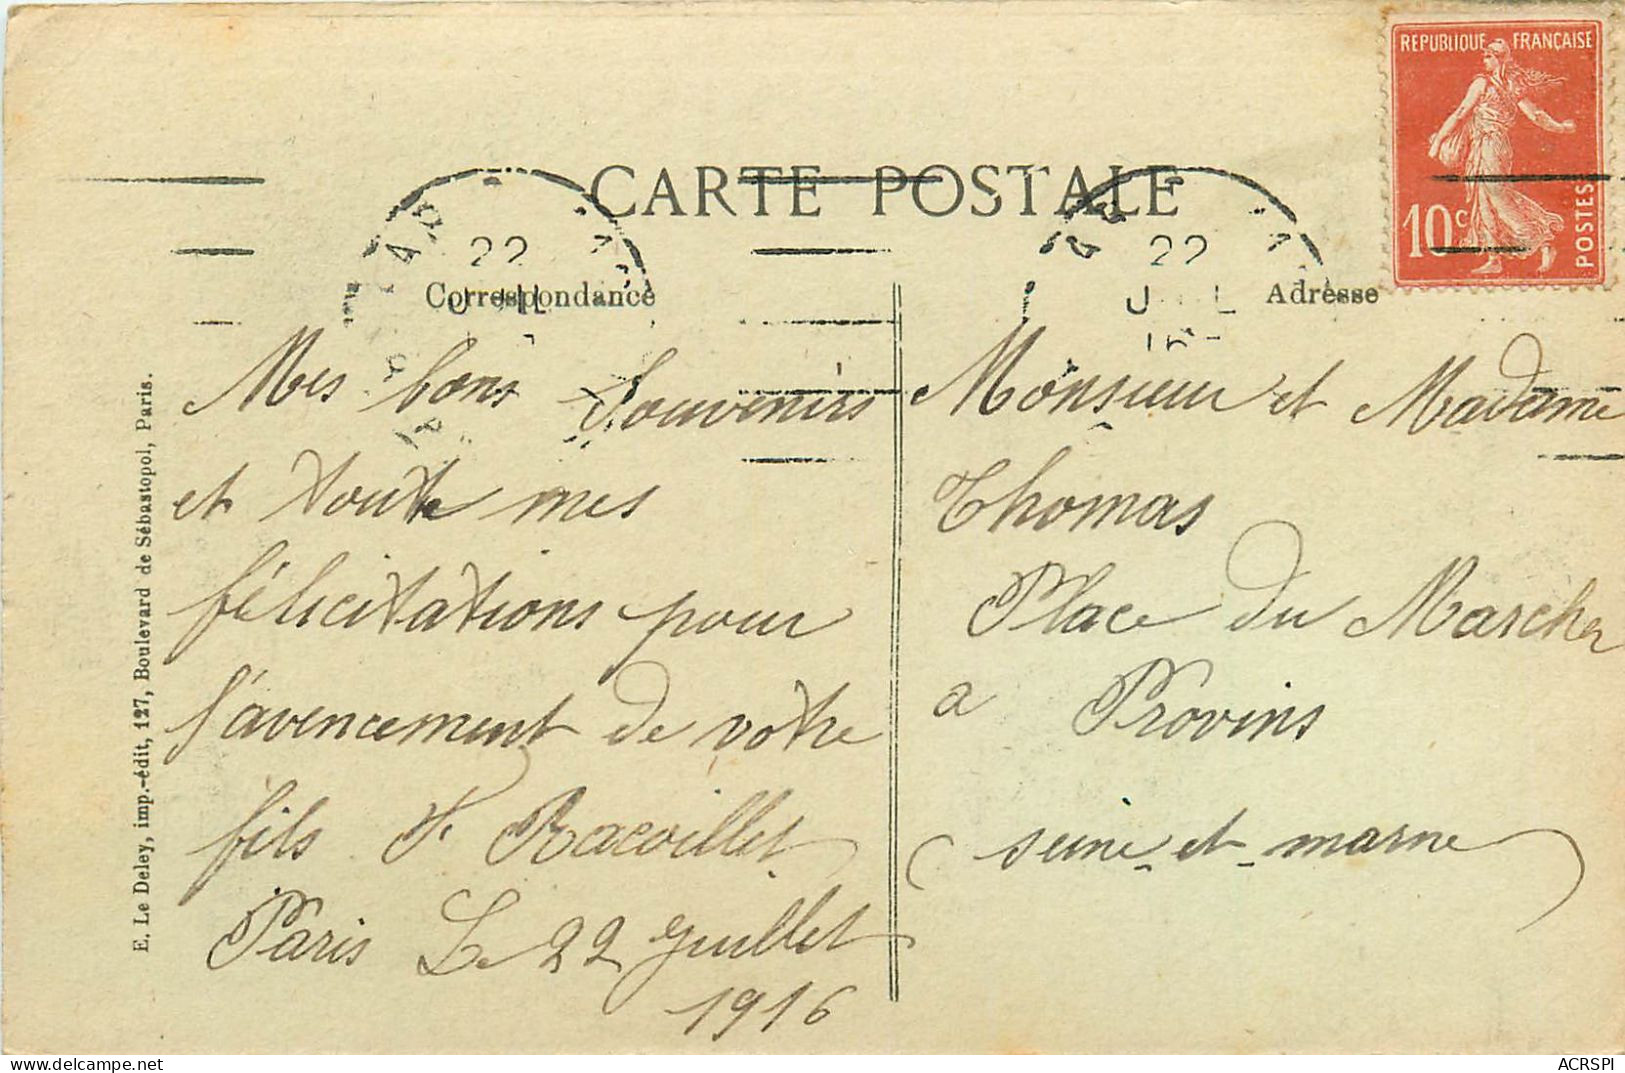 CARTE POSTALE
REPUBLIQUE FRANÇAISE
10c
POSTES
22
22
Correspondance
Adresse
Mes bons Souvenirs
et toute mes
félicitations pour
l'avencement de votre
fils F. Racoillet
Paris Le 22 Juillet
1916
Monsieur et Madame
Thomas
Place du Marcher
a Provins
(seine-et-marne)
E. Le Deley, imp.-édit, 127, Boulevard de Sébastopol, Paris.
https://www.delcampe.net
ACRSPI